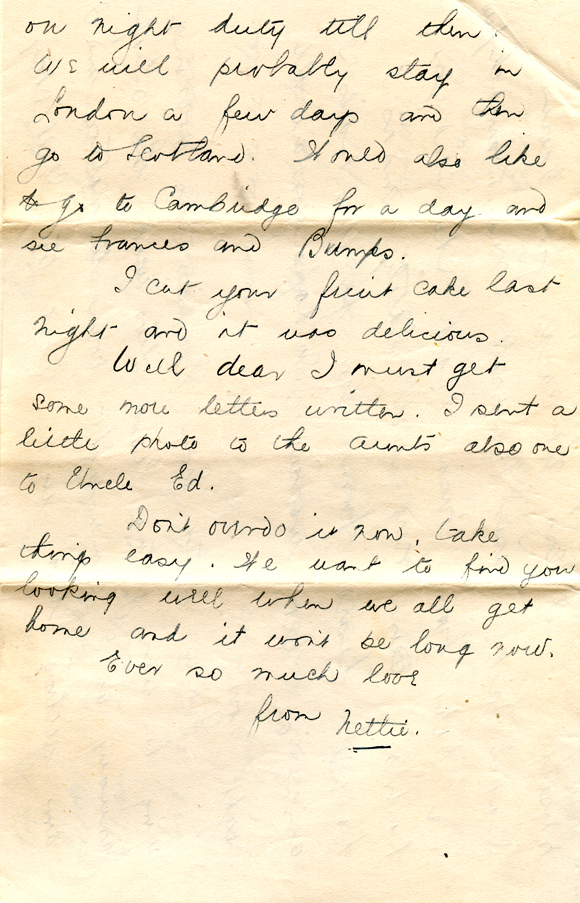 on night duty till then.
We will probably stay in
London a few days and then
go to Scotland. Would also like
to go to Cambridge for a day and
see Frances and Bumps.
I cut your fruit cake last
night and it was delicious.
Well dear I must get
some more letters written. I sent a
little photo to the aunts also one
to Uncle Ed.
Don't overdo it now, take
things easy. We want to find you
looking well when we all get
home and it won't be long now.
Ever so much love
from Nettie.